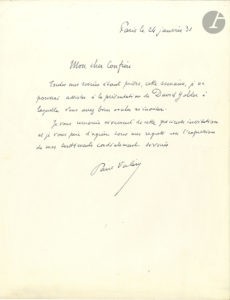 Paris le 26 janvier 31
Mon cher Confrère
Toutes mes soirées étant prises, cette semaine, je ne
pourrai assister à la présentation de David Golder à
laquelle vous avez bien voulu m'inviter.
Je vous remercie vivement de cette invitation
et je vous prie d'agréer tous mes regrets et l'expression
de mes sentiments cordialement dévoués.
Paul Valéry